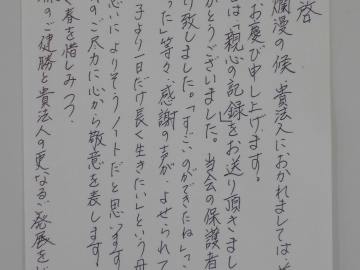 啓
爛漫の候、貴法人におかれましては
お慶び申し上げます。
は「親心の記録」をお送り頂きまし
がとうございました。当会の保護者
り致しました。「すごいのができたね」「こ
った」等々、感謝の声が、よせられて
子より一日だけ長く生きたい」という母
思いによりそうノートだと思います
のご尽力に心から敬意を表します。
春を惜しみつつ、
のご健勝と貴法人の更なるご発展を